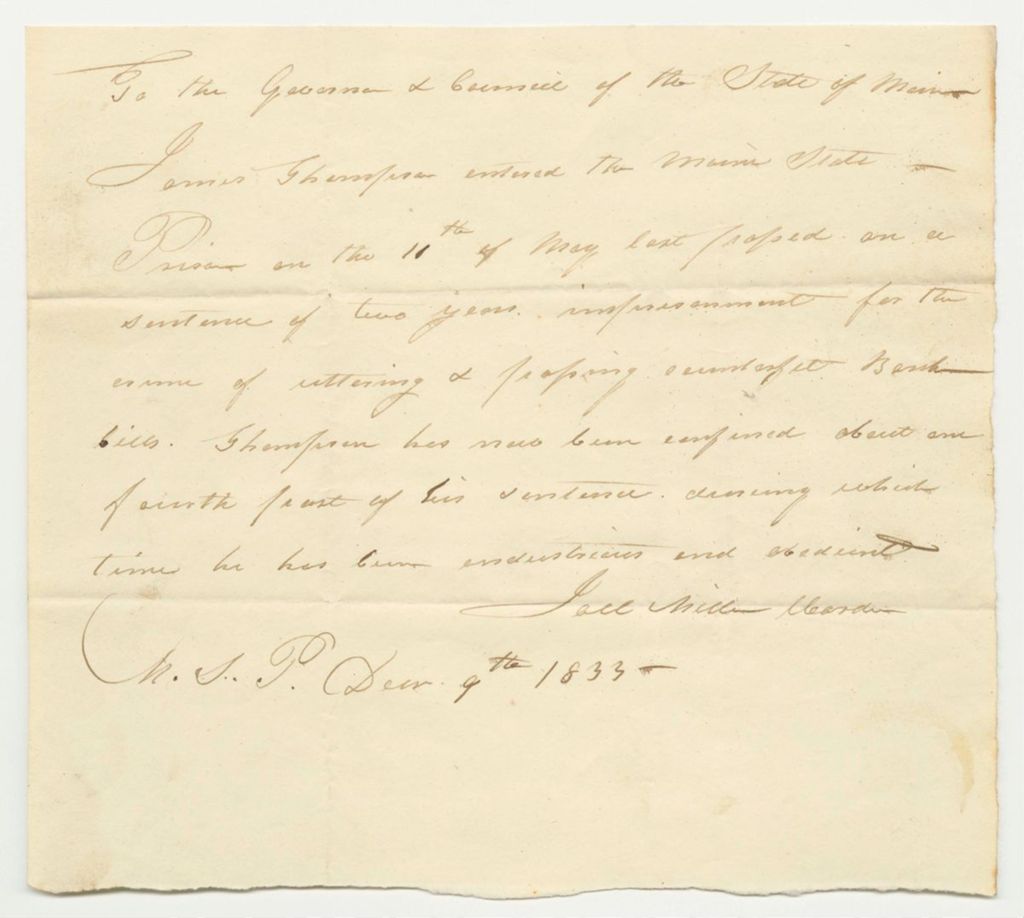 To the Governor & Council of the State of Maine
James Thompson entered the Maine State
Prison on the 11th of May last passed on a
sentence of two years imprisonment for the
crime of uttering & passing counterfeit Bank
bills. Thompson has now been confined about one
fourth part of his sentence. during which
time he has been industrious and obedient
Joel Miller Warden
M. S. P. Decr. 9th 1833